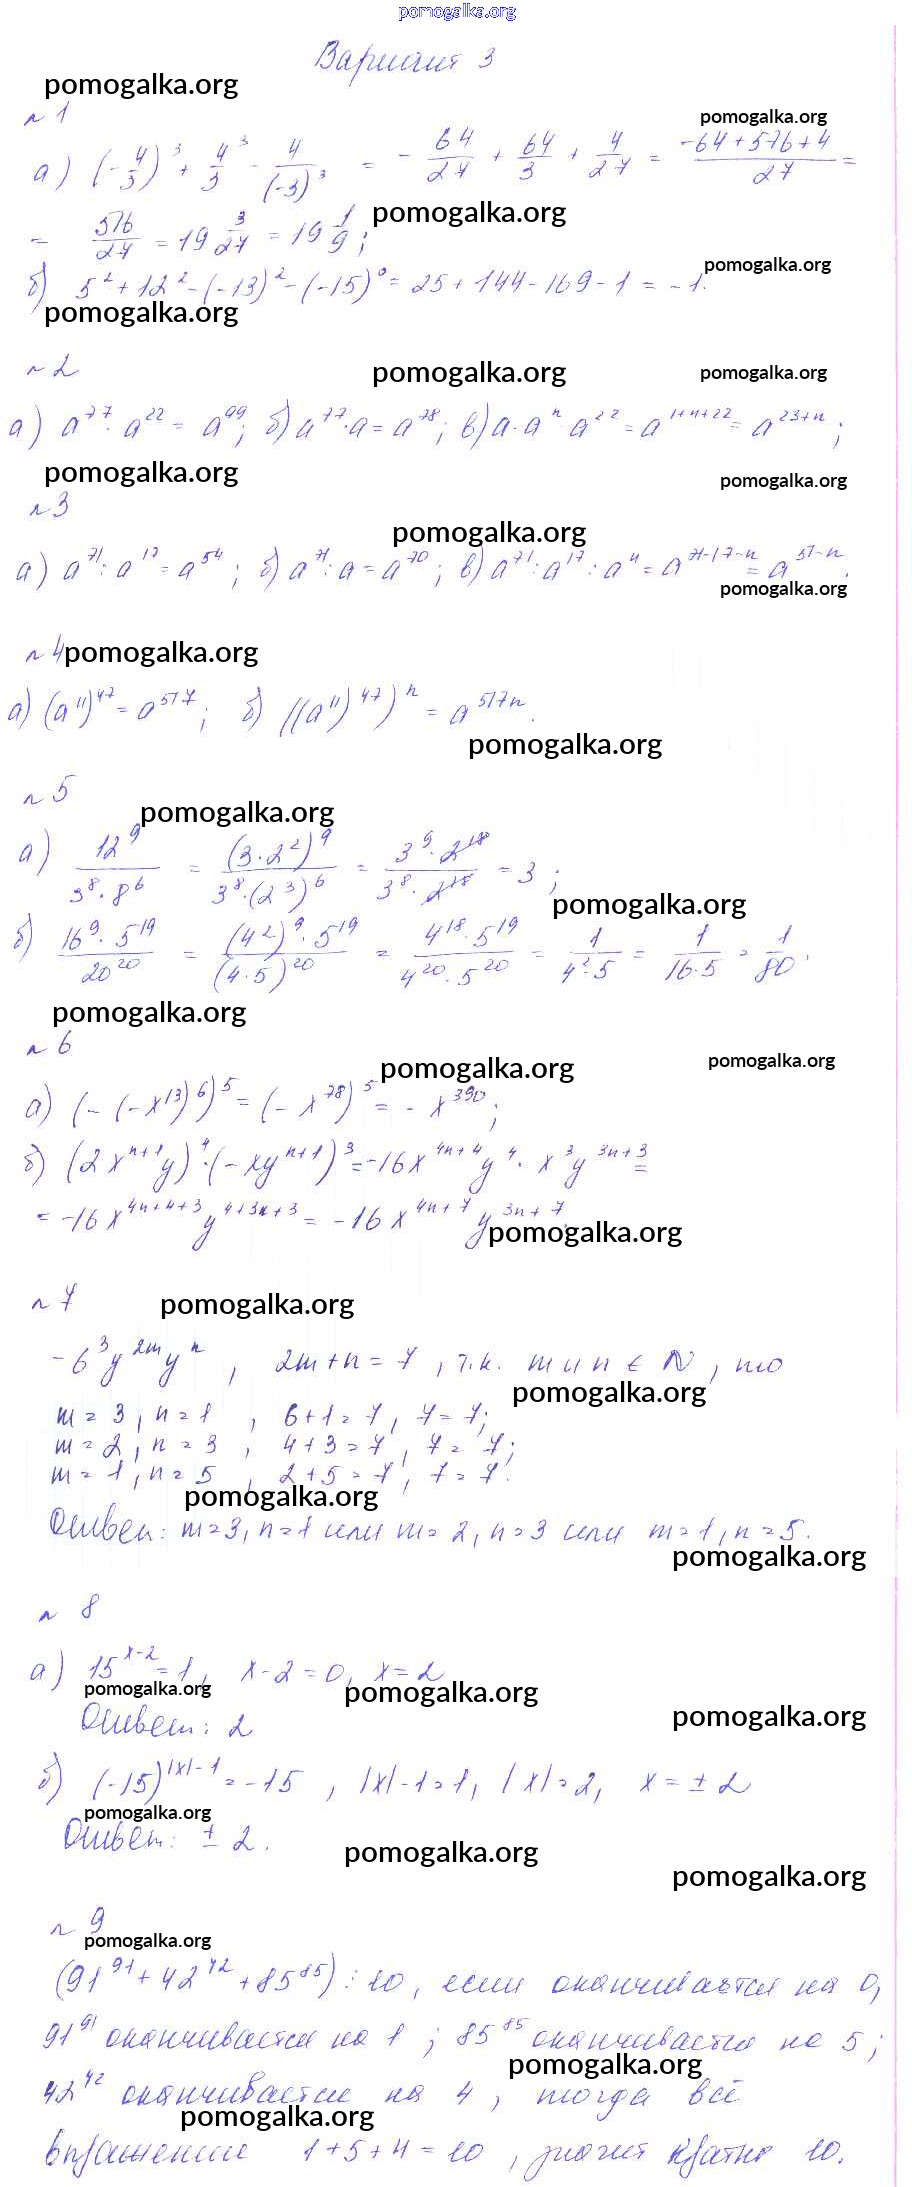 pomogalka.org
Вариант 3
pomogalka.org
№ 1
pomogalka.org
а) (-4/3)³ + 4³/3 - 4/(-3)³ = - 64/27 + 64/3 + 4/27 = (-64+576+4)/27 =
= 516/27 = 19 3/27 = 19 1/9;
pomogalka.org
pomogalka.org
б) 5² + 12² - (-13)² - (-15)⁰ = 25 + 144 - 169 - 1 = -1.
pomogalka.org
№ 2
pomogalka.org
pomogalka.org
а) a⁷⁷ · a²² = a⁹⁹; б) a⁷⁷ · a = a⁷⁸; в) a · aⁿ · a²² = a¹⁺ⁿ⁺²² = a²³⁺ⁿ;
pomogalka.org
pomogalka.org
№ 3
pomogalka.org
а) a⁷¹ : a¹⁷ = a⁵⁴; б) a⁷¹ : a = a⁷⁰; в) a⁷¹ : a¹⁷ : aⁿ = a⁷¹⁻¹⁷⁻ⁿ = a⁵¹⁻ⁿ.
pomogalka.org
№ 4
pomogalka.org
а) (a¹¹)⁴⁷ = a⁵¹⁷; б) ((a¹¹)⁴⁷)ⁿ = a⁵¹⁷ⁿ.
pomogalka.org
№ 5
pomogalka.org
а) 12⁹/(3⁸ · 8⁶) = (3 · 2²)⁹/(3⁸ · (2³)⁶) = (3⁹ · 2¹⁸)/(3⁸ · 2¹⁸) = 3;
pomogalka.org
б) (16⁹ · 5¹⁹)/20²⁰ = ((4²)⁹ · 5¹⁹)/(4 · 5)²⁰ = (4¹⁸ · 5¹⁹)/(4²⁰ · 5²⁰) = 1/(4² · 5) = 1/(16 · 5) = 1/80.
pomogalka.org
№ 6
pomogalka.org
pomogalka.org
а) (-(-x¹³)⁶)⁵ = (-x⁷⁸)⁵ = -x³⁹⁰;
б) (2xⁿ⁺¹y)⁴ · (-xyⁿ⁺¹)³ = -16x⁴ⁿ⁺⁴y⁴ · x³y³ⁿ⁺³ =
= -16x⁴ⁿ⁺⁴⁺³y⁴⁺³ⁿ⁺³ = -16x⁴ⁿ⁺⁷y³ⁿ⁺⁷
pomogalka.org
№ 7
pomogalka.org
-6³y²ᵐyⁿ, 2m+n = 7, т.к. m и n ∈ N, то
pomogalka.org
m = 3, n = 1, 6+1 = 7, 7 = 7;
m = 2, n = 3, 4+3 = 7, 7 = 7;
m = 1, n = 5, 2+5 = 7, 7 = 7.
pomogalka.org
Ответ: m = 3, n = 1 или m = 2, n = 3 или m = 1, n = 5.
pomogalka.org
№ 8
а) 15ˣ⁻² = 1, x-2 = 0, x = 2
pomogalka.org
pomogalka.org
pomogalka.org
Ответ: 2
б) (-15)^(|x|-1) = -15, |x|-1 = 1, |x| = 2, x = ± 2
pomogalka.org
Ответ: ± 2.
pomogalka.org
pomogalka.org
№ 9
pomogalka.org
(91⁹¹ + 42⁴² + 85⁸⁵) ⋮ 10, если оканчивается на 0,
91⁹¹ оканчивается на 1; 85⁸⁵ оканчивается на 5;
pomogalka.org
42⁴² оканчивается на 4, тогда всё
pomogalka.org
выражение 1+5+4 = 10, значит кратно 10.